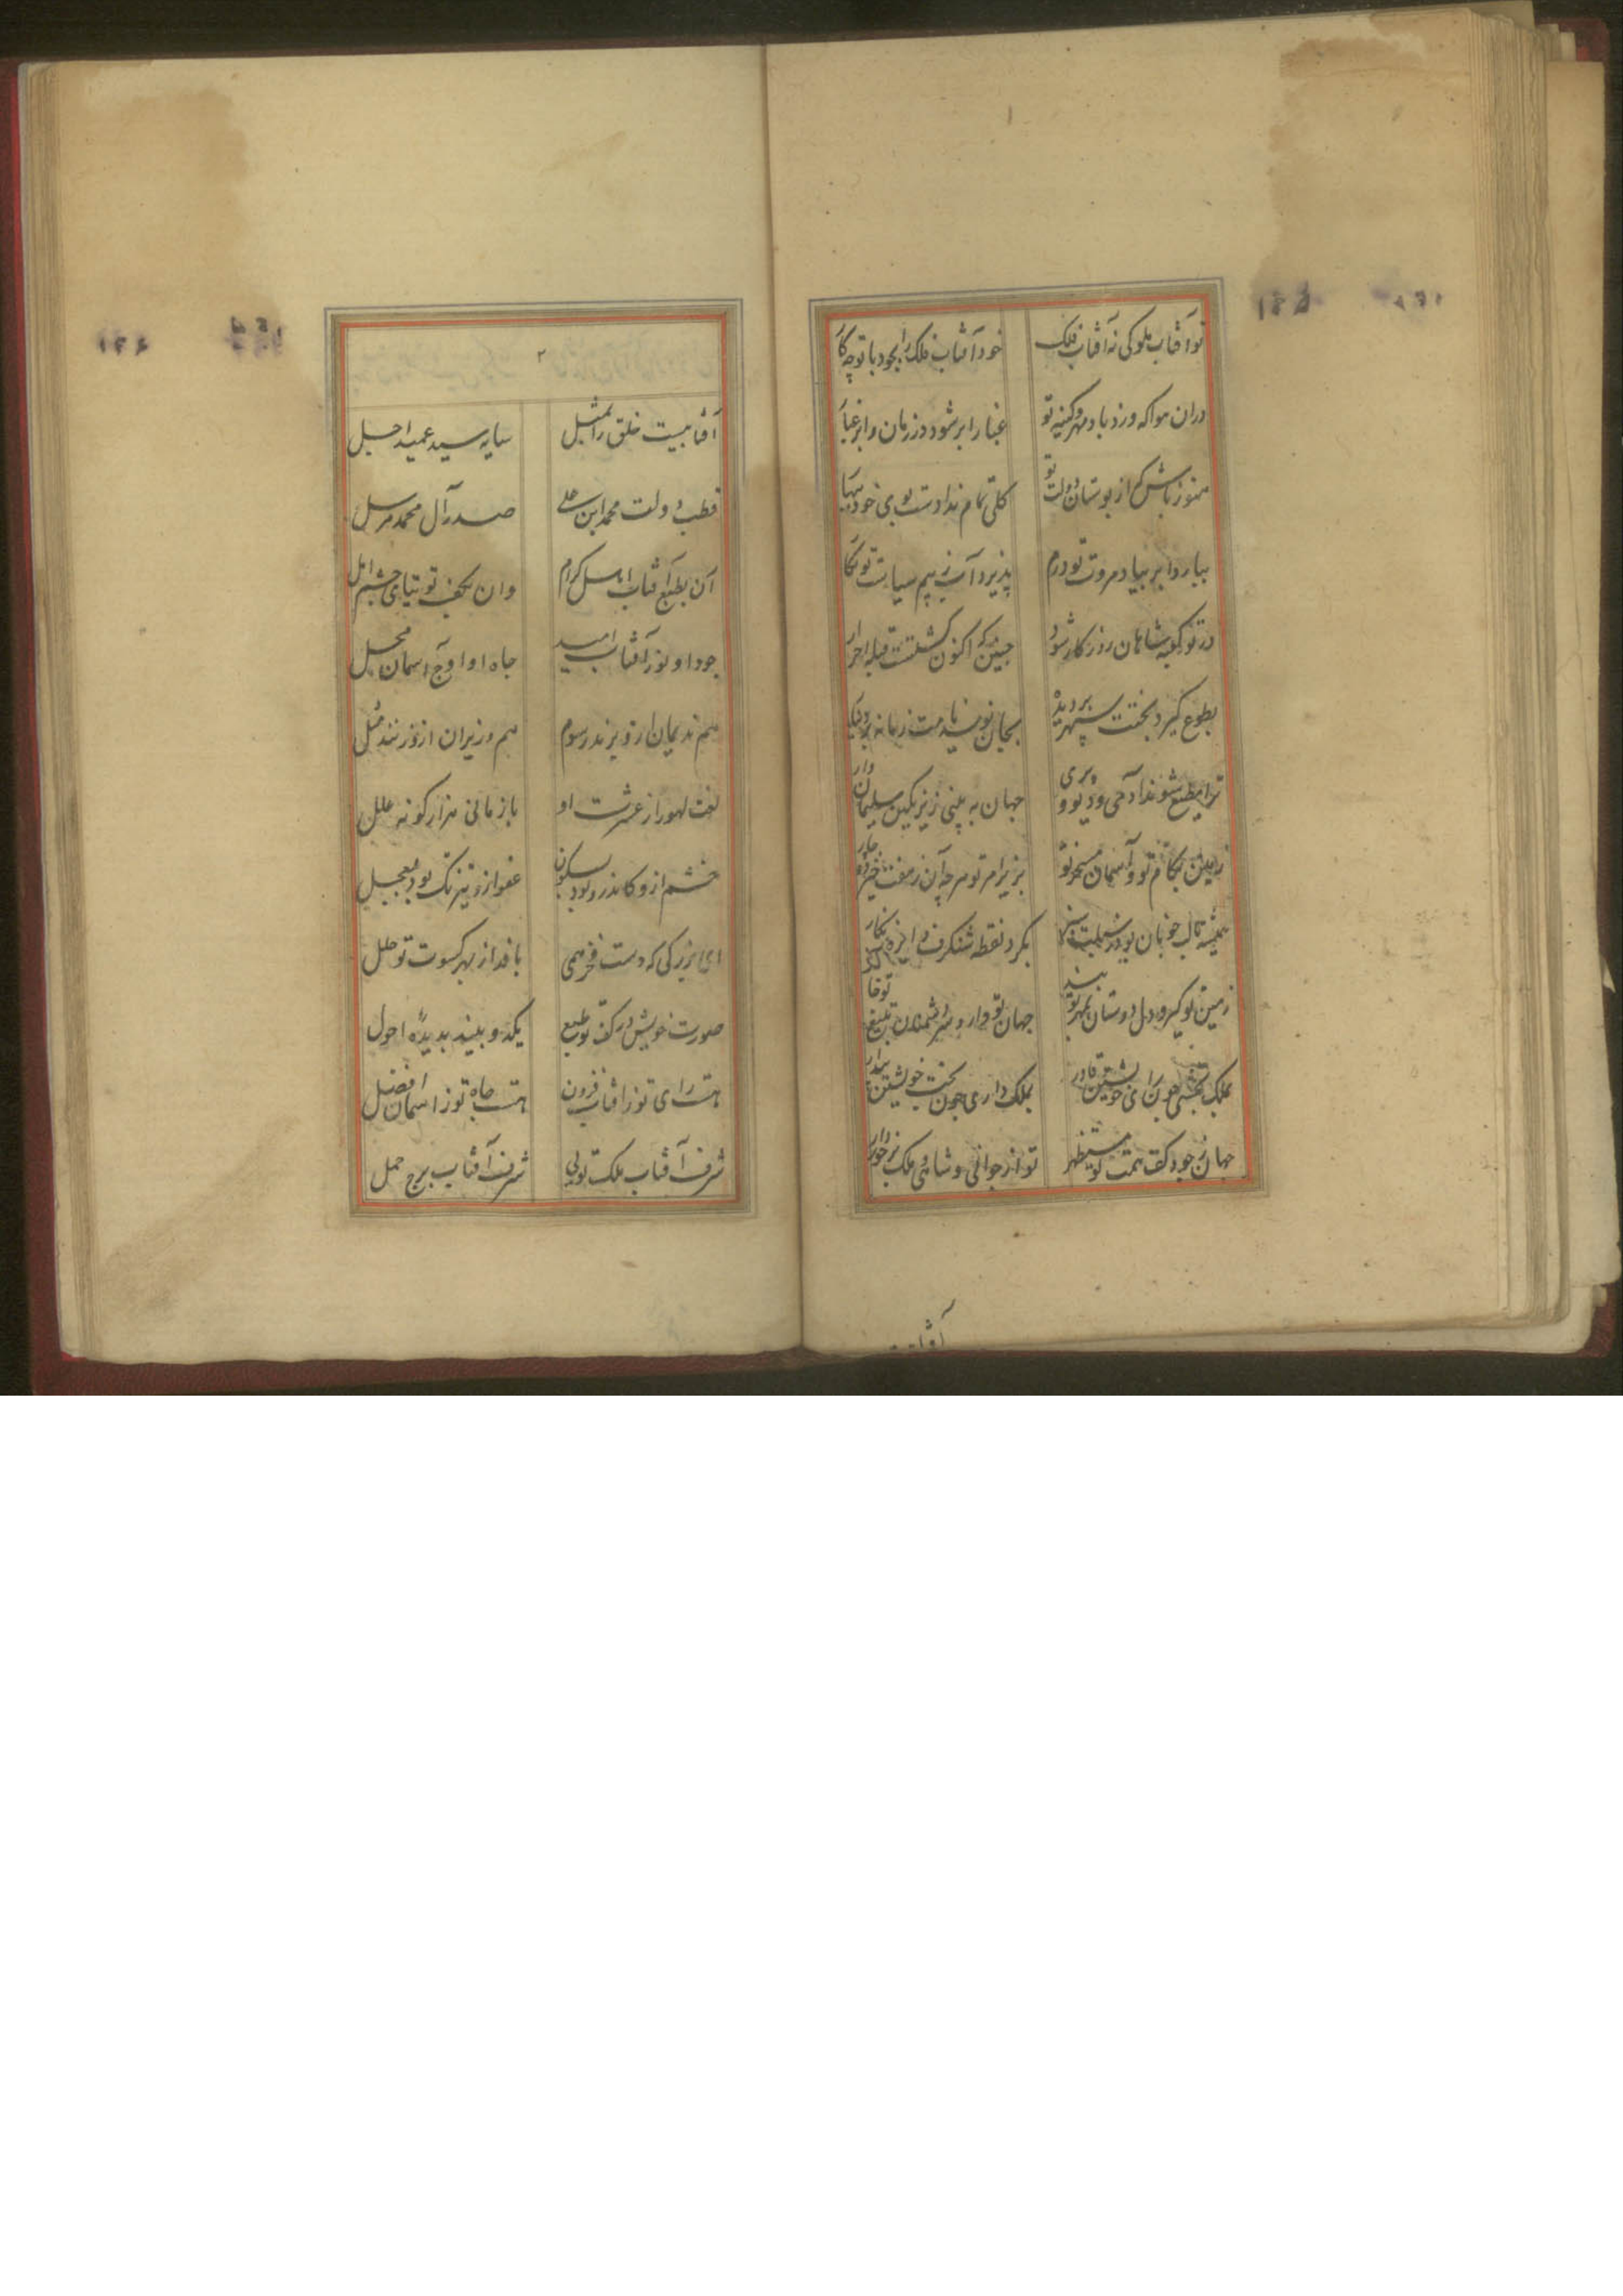 تو آفتاب ملوکی نه آفتاب فلک خود آفتاب فلک را بجود با تو چه کا
دران هوا که وزد باد مهر و کینه تو غبار ابر شود در زمان و ابر غبا
هنوز باش کز بوستان دولت تو گلی تمام ندادست بوی خود ببها
ببارد ابر بیاد مروت تو درم پذیرد آب ز بیم سیاست تو نکا
در تو کعبه شاهان روزکار شود چنین که اکنون گشتست قبله احرار
بطوع گیرد بختت سپهر بر دیده بجان نویسد نامت زمانه بر
ترا مطیع شوند آدمی و دیو و پری جهان به بینی زیر نگین سلیمان وار
زمین بکام تو و آسمان مسخر تو بزیر امر تو هر چه آن ز هفت
همیشه تا لب خوبان بود بگرد نقطه شنکرف دایره نکار
زمین تو گیر و دل دوستان بمهر تو بند جهان تو دار و سر دشمنان بتیغ تو
بملک بخشی چون رای خویشتن قادر بملک داری چون بخت خویشتن بیدار
جهان ز جود کف همت تو مستظهر تو از جوانی و شاهی و ملک برخوردار
۲
آفتابیست خلق را بمثل سایه سید عمید اجل
قطب دولت محمد ابن علی صدر آل محمد مرسل
آن بطبع آفتاب اهل کرام وان بکف توتیای چشم امل
جود او نور آفتاب امید جاه او اوج آسمان محل
هم ندیمان ازو برند رسوم هم وزیران ازو زنند مثل
لهور از عشرت او باز مانی هزار کونه علل
خشم ازو کاندرو بود سکون عفو ازو تیز تک بود بعجل
ای بزرکی که دست فخر همی بافد از بهر کسوت تو حلل
صورت خویش در کف تو طمع یکدو بیند بدیده احول
هست رای تو ز آفتاب فزون هست جاه تو ز اسمان افضل
شرف آفتاب ملک تویی شرف آفتاب برج حمل